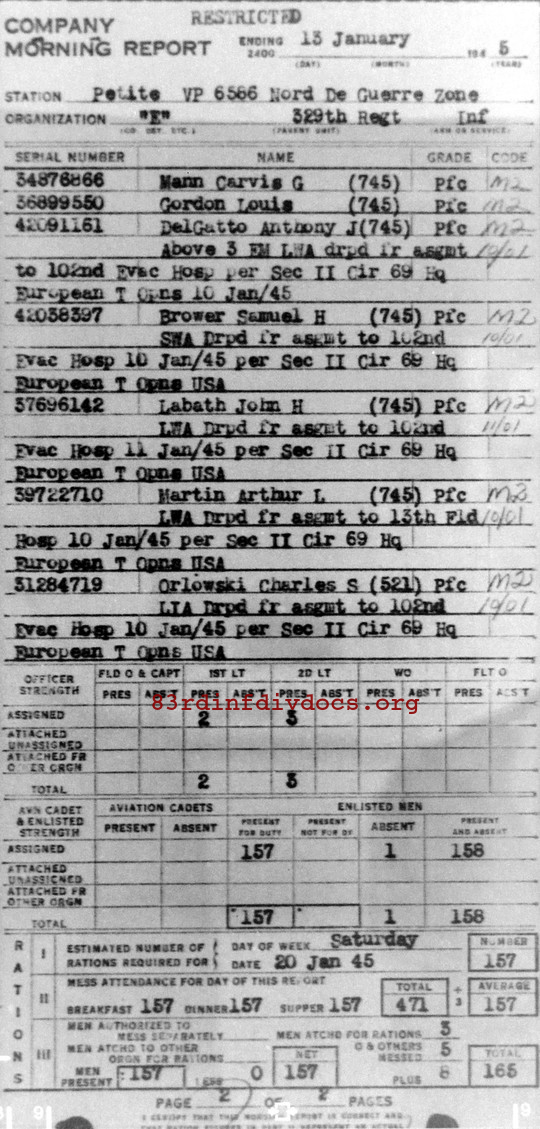 RESTRICTED
COMPANY
MORNING REPORT ENDING 2400 13 January 1945
(DAY) (MONTH) (YEAR)
STATION Petite VP 6566 Nord De Guerre Zone
ORGANIZATION "E" 329th Regt Inf
(CO. DET. ETC.) (PARENT UNIT) (ARM OR SERVICE)
SERIAL NUMBER NAME GRADE CODE
34876866 Mann Carvis G (745) Pfc M2
36899550 Gordon Louis (745) Pfc M2
42091151 DelGatto Anthony J(745) Pfc M2
Above 3 EM LWA drpd fr asgmt 10/01
to 102nd Evac Hosp per Sec II Cir 69 Hq
European T Opns 10 Jan/45
42038397 Brower Samuel H (745) Pfc M2
SWA Drpd fr asgmt to 102nd 10/01
Evac Hosp 10 Jan/45 per Sec II Cir 69 Hq
European T Opns USA
37696142 Labath John H (745) Pfc M2
LWA Drpd fr asgmt to 102nd 11/01
Evac Hosp 11 Jan/45 per Sec II Cir 69 Hq
European T Opns USA
39722710 Martin Arthur L (745) Pfc M2
LWA Drpd fr asgmt to 13th Fld 10/01
Hosp 10 Jan/45 per Sec II Cir 69 Hq
European T Opns USA
31284719 Orlowski Charles S (521) Pfc M2
LIA Drpd fr asgmt to 102nd 10/01
Evac Hosp 10 Jan/45 per Sec II Cir 69 Hq
European T Opns USA
OFFICER STRENGTH FLD O & CAPT 1ST LT 2D LT WO FLT O
PRES ABS'T PRES ABS'T PRES ABS'T PRES ABS'T PRES ABS'T
83rdinfdivdocs.org
ASSIGNED 2 3
ATTACHED UNASSIGNED
ATTACHED FR OTHER ORGN
TOTAL 2 3
AVN CADET & ENLISTED STRENGTH AVIATION CADETS ENLISTED MEN
PRESENT ABSENT PRESENT FOR DUTY PRESENT NOT FOR DY ABSENT PRESENT AND ABSENT
ASSIGNED 157 1 158
ATTACHED UNASSIGNED
ATTACHED FR OTHER ORGN
TOTAL 157 1 158
RATIONS
I ESTIMATED NUMBER OF RATIONS REQUIRED FOR DAY OF WEEK Saturday NUMBER
DATE 20 Jan 45 157
II MESS ATTENDANCE FOR DAY OF THIS REPORT TOTAL ÷ 3 AVERAGE
BREAKFAST 157 DINNER 157 SUPPER 157 471 157
III MEN AUTHORIZED TO MESS SEPARATELY MEN ATCHD FOR RATIONS 3
MEN ATCHD TO OTHER ORGN FOR RATIONS NET O & OTHERS MESSED 5 TOTAL
MEN PRESENT 157 LESS 0 157 PLUS 8 165
PAGE 2 OF 2 PAGES
I CERTIFY THAT THIS MORNING REPORT IS CORRECT AND